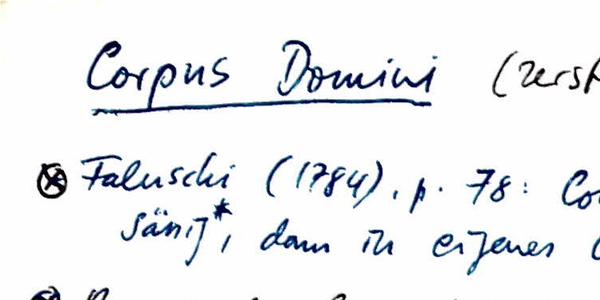 Corpus Domini (zerst
⊗ Faluschi (1784), p. 78: Co
sänij*, dann in eigenes